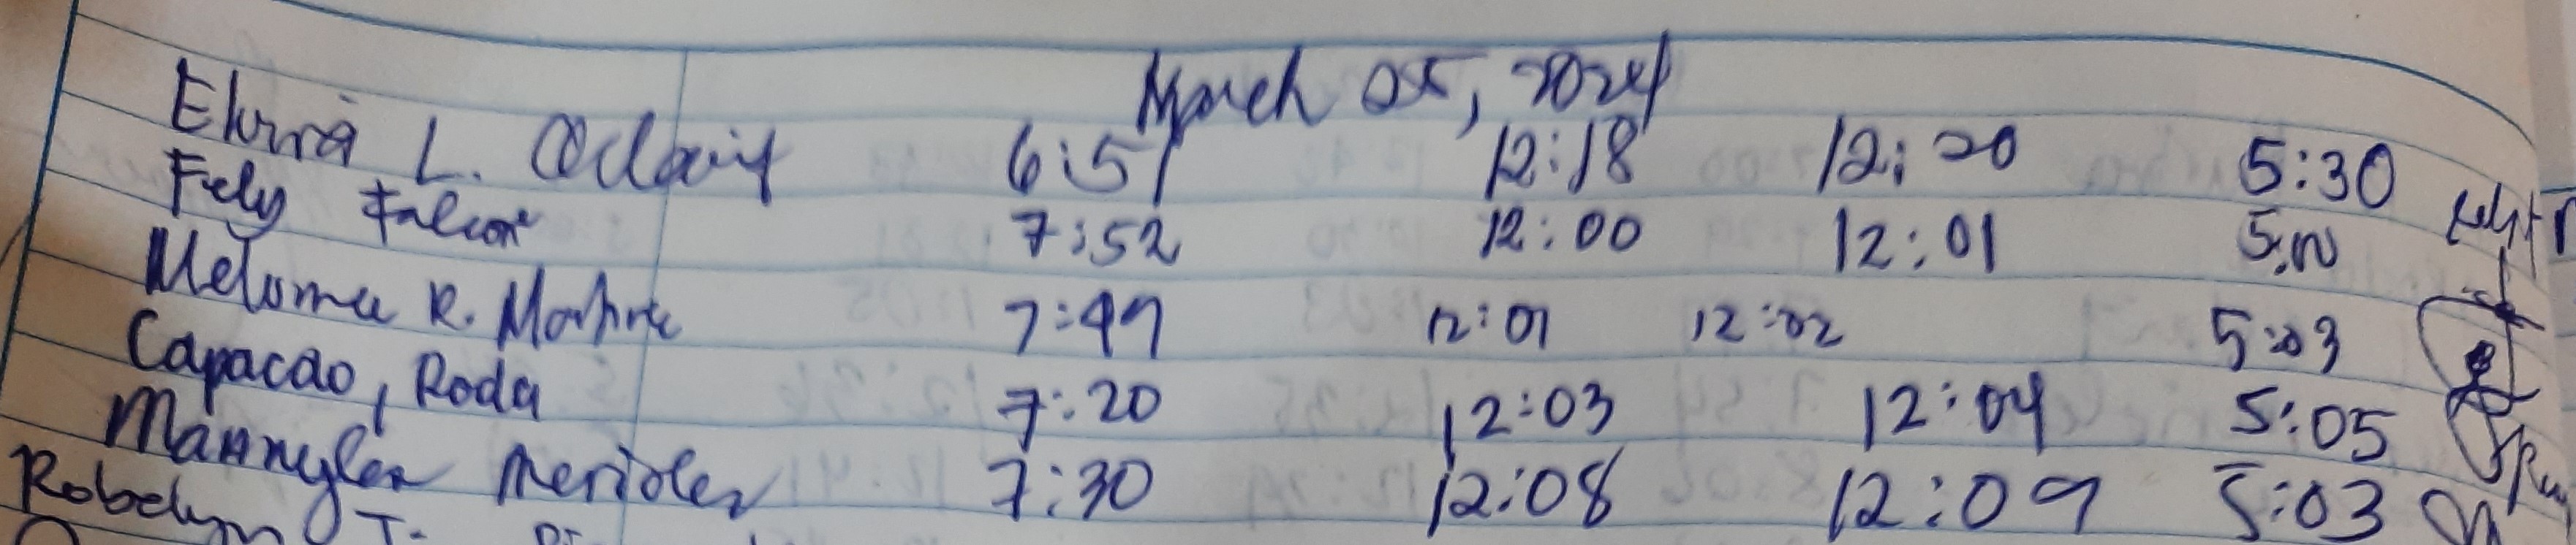 March 05, 2024
Elvira L. 6:51 12:18 12:20 5:30
Fely Falcone 7:52 12:00 12:01 5:00
R. 7:49 12:01 12:02 5:03
Capacao, Roda 7:20 12:03 12:04 5:05
Mannylen Merioles 7:30 12:08 12:09 5:03
Robelyn T.